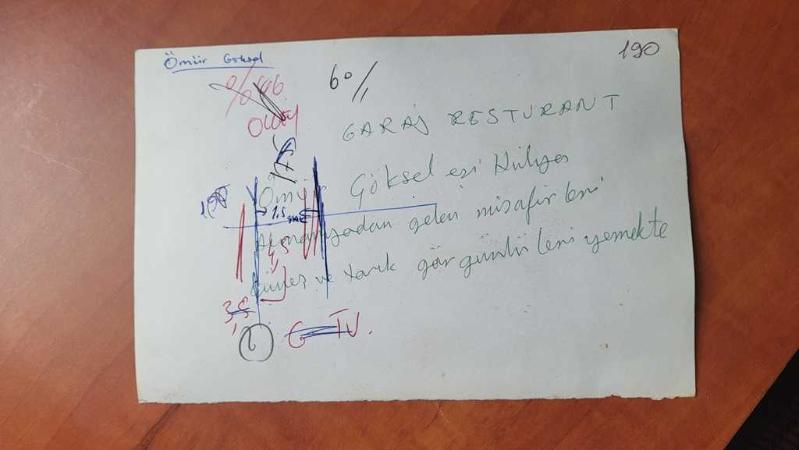 Ömür Göksel
190
60/,
Olay
GARAJ RESTURANT
Ömür Göksel eşi Hülya
Almanyadan gelen misafirleri
Güneş ve tarık görgünlü leri yemekte
1,5
4,5
3,5
6
G TV.